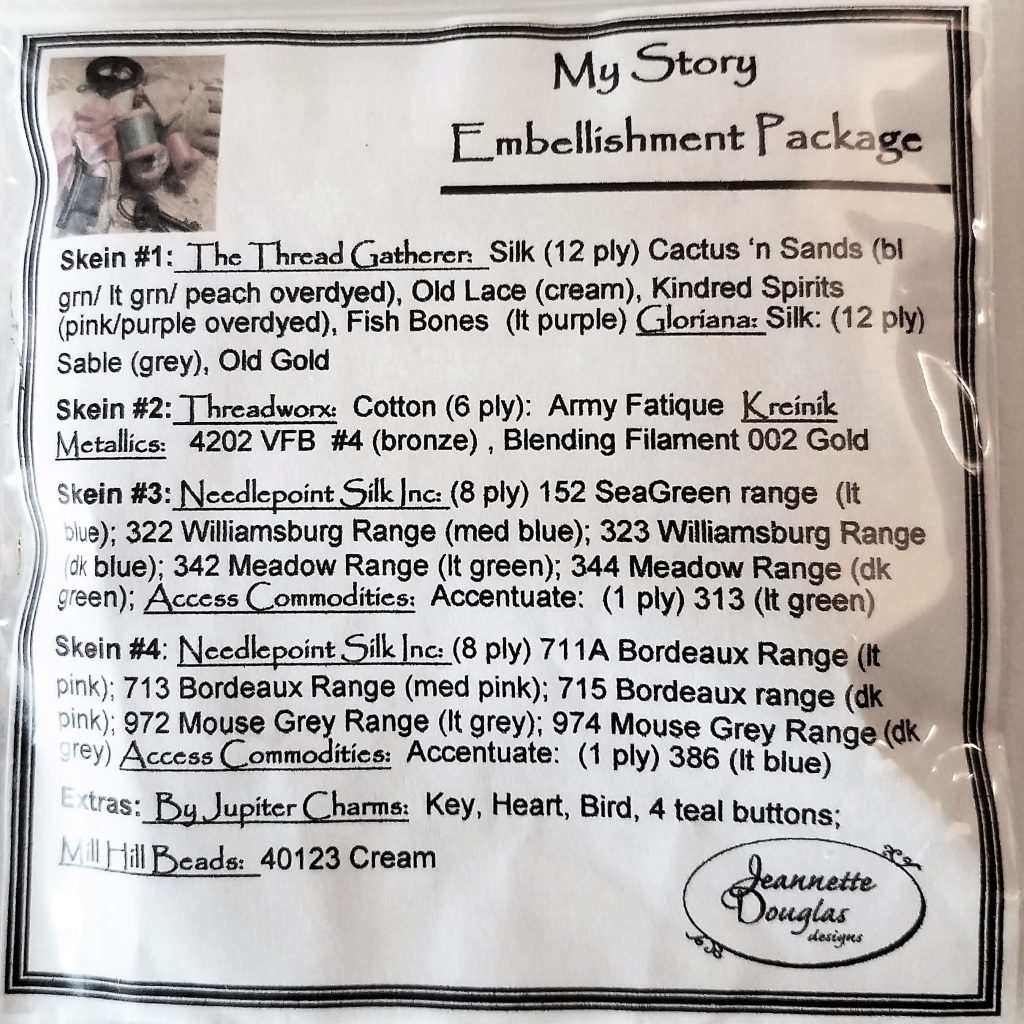 My Story
Embellishment Package
Skein #1: The Thread Gatherer: Silk (12 ply) Cactus 'n Sands (bl
grn/ lt grn/ peach overdyed), Old Lace (cream), Kindred Spirits
(pink/purple overdyed), Fish Bones (lt purple) Gloriana: Silk: (12 ply)
Sable (grey), Old Gold
Skein #2: Threadworx: Cotton (6 ply): Army Fatique Kreinik
Metallics: 4202 VFB #4 (bronze) , Blending Filament 002 Gold
Skein #3: Needlepoint Silk Inc: (8 ply) 152 SeaGreen range (lt
blue); 322 Williamsburg Range (med blue); 323 Williamsburg Range
(dk blue); 342 Meadow Range (lt green); 344 Meadow Range (dk
green); Access Commodities: Accentuate: (1 ply) 313 (lt green)
Skein #4: Needlepoint Silk Inc: (8 ply) 711A Bordeaux Range (lt
pink); 713 Bordeaux Range (med pink); 715 Bordeaux range (dk
pink); 972 Mouse Grey Range (lt grey); 974 Mouse Grey Range (dk
grey) Access Commodities: Accentuate: (1 ply) 386 (lt blue)
Extras: By Jupiter Charms: Key, Heart, Bird, 4 teal buttons;
Mill Hill Beads: 40123 Cream
Jeannette
Douglas
designs